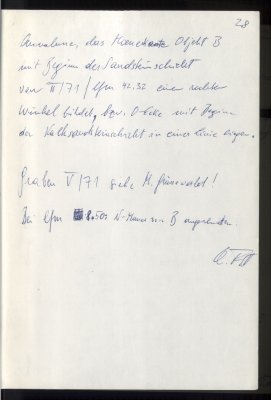 28
Annahme, dass Mauerkante Objekt B
mit Beginn der Sandsteinschicht
von II/71 / lfm 42.32 einen rechten
Winkel bildet, bzw. O-Ecke mit Beginn
der Kalksandsteinschicht in einer Linie liegen.
Graben V/71 siehe M. Grünewald!
Bei lfm 8.50 N-Mauer von B angeschnitten.